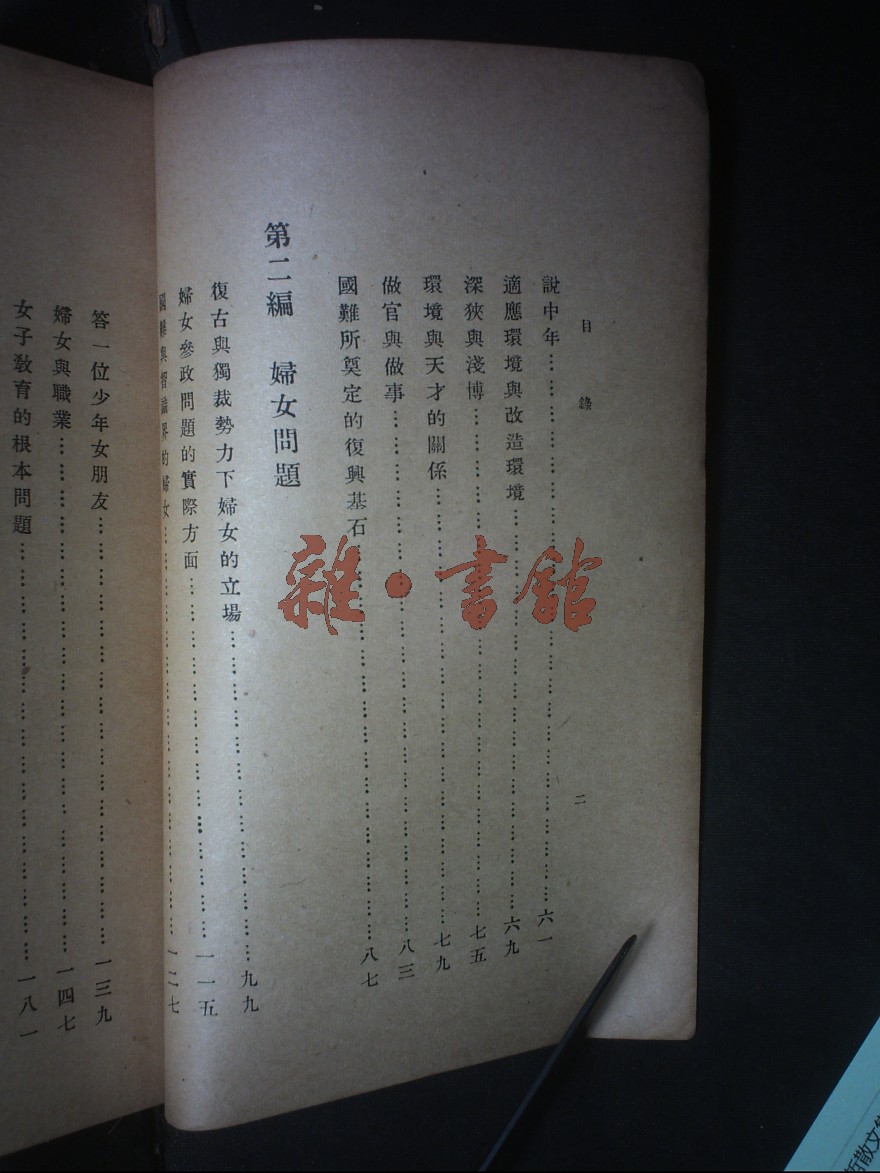 目錄 二
說中年………………六一
適應環境與改造環境………………六九
深狹與淺博………………七五
環境與天才的關係………………七九
做官與做事………………八三
國難所奠定的復興基石………………八七
第二編 婦女問題
復古與獨裁勢力下婦女的立場………………九九
婦女參政問題的實際方面………………一一五
國難與智識界的婦女………………一二七
答一位少年女朋友………………一三九
婦女與職業………………一四七
女子教育的根本問題………………一八一
雜·書館
散文